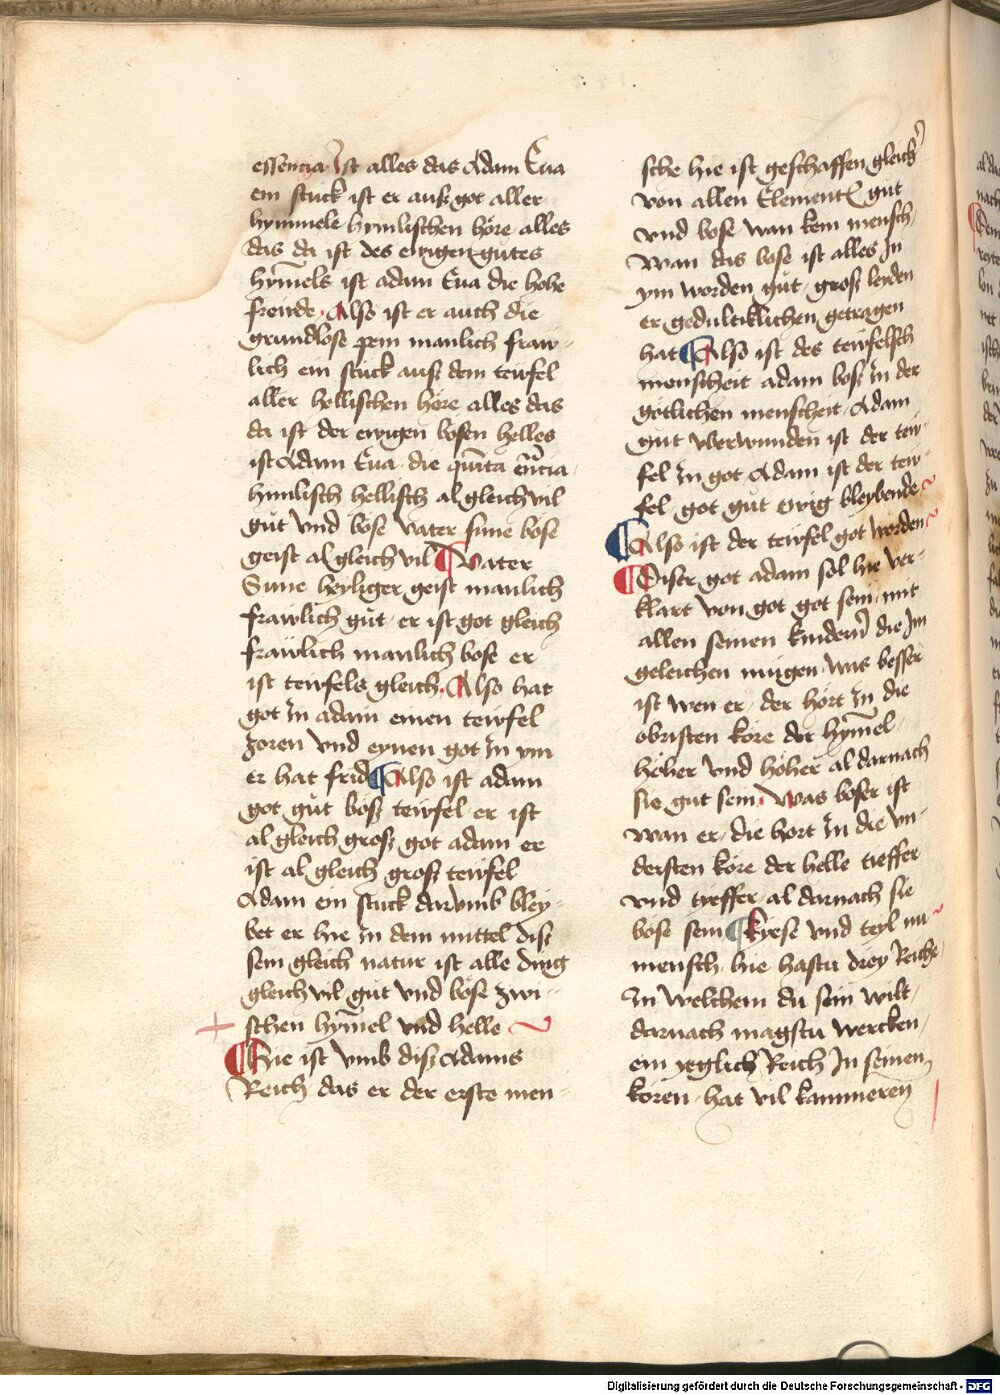 essencia Ist alles das Adam Eua
ein stuck ist er auß got aller
hymmele himlischen höre alles
das da ist des ewigen gutes
hym̄els ist adam Eua die hohe
freude. Also ist er auch die
grundlose pein manlich fraw-
lich ein stuck auß dem tewfel
aller hellischen höre alles das
da ist der ewigen bosen helles
ist Adam Eua die qui͂ta e͂ncia
himlisch hellisch al gleich vil
gut vnd böse vater sune bose
geist al gleich vil ¶ Vater
Sune heyliger geist manlich
frawlich gut er ist got gleich
frawlich manlich bose er
ist tewfels gleich. Also hat
got in adam einen tewfel
zoren vnd eynen got in ym
er hat frid ¶ Also ist adam
got gut böß tewfel er ist
al gleich groß got adam er
ist al gleich groß tewfel
Adam ein stuck darvmb bley-
bet er hie in dem mittel diß
sein gleich natur ist alle ding
gleich vil gut vnd böse zwi-
schen hym̄el vnd helle
¶ Hie ist vmb diß Adams
Reich das er der erste men-
sche hie ist geschaffen gleich
von allen Element gut
vnd bose wan kein mensch
wan das bose ist alles in
ym worden gut groß leyden
er gedultiklichen getragen
hat ¶ Also ist des tewfelsch
menscheit adam boß in der
götlichen menscheit Adam
gut vberwunden ist der tew-
fel in got Adam ist der tew-
fel got gut ewig bleybende
¶ Also ist der tewfel got worden
¶ Diser got adam sol hie ver-
klart von got got sein mit
allen seinen kindern die im
geleichen mugen was besser
ist wen er der hört in die
obristen köre der hym̄el
höher vnd höher al darnach
sie gut sein. Was böser ist
wan er die hort in die vn-
dersten köre der helle tieffer
vnd tyeffer al darnach sie
böse sein ¶ Kyese vnd teyl nu
mensch hie hastu drey Reiche
in welchem du sein wilt
darnach magstu wercken
ein yeglich Reich in seinen
kören hat vil kammeren
Digitalisierung gefördert durch die Deutsche Forschungsgemeinschaft - DFG